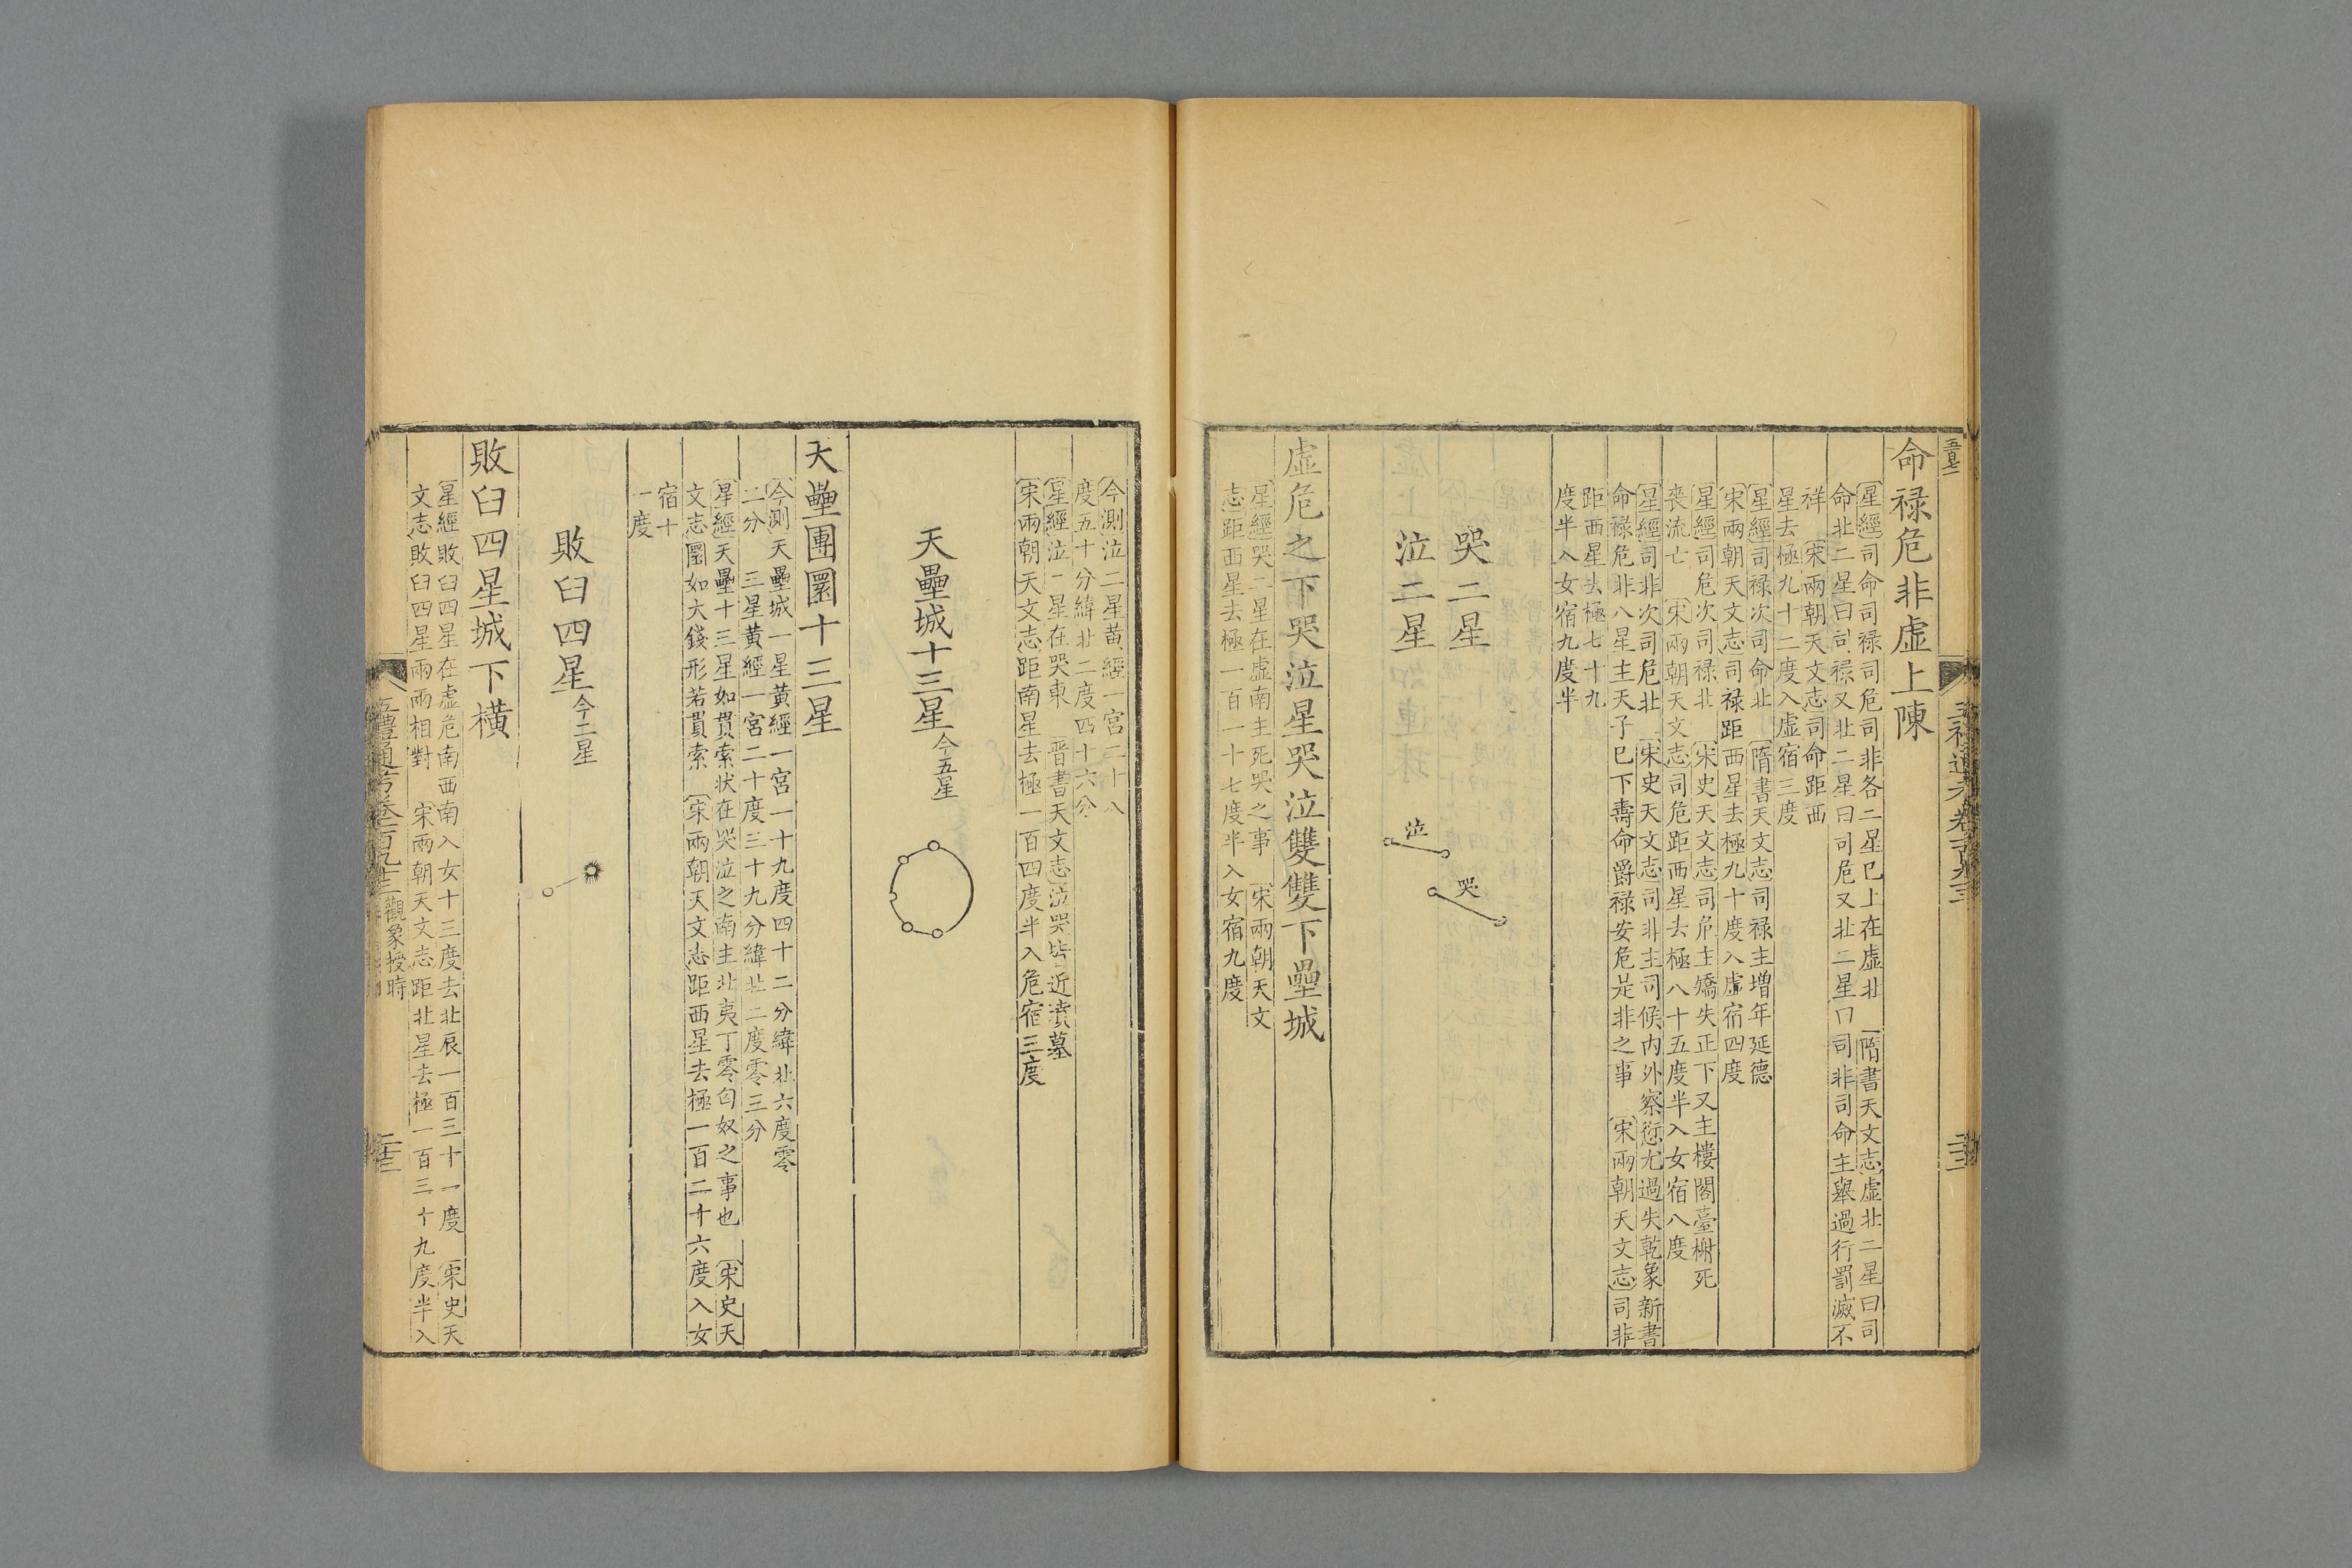 命禄危非虛上陳
星經司命司禄司危司非各二星巳上在虛北 隋書天文志虛北二星曰司
命北二星曰司禄又北二星曰司危又北二星曰司非司命主舉過行罰滅不
祥 宋兩朝天文志司命距西
星去極九十二度入虛宿三度
星經司禄次司命北 隋書天文志司禄主增年延德
宋兩朝天文志司禄距西星去極九十度入虛宿四度
星經司危次司禄北 宋史天文志司危主矯失正下又主樓閣臺榭死
喪流亡 宋兩朝天文志司危距西星去極八十五度半入女宿八度
星經司非次司危北 宋史天文志司非主司候内外察愆尤過失乾象新書
命禄危非八星主天子巳下壽命爵禄安危是非之事 宋兩朝天文志司非
距西星去極七十九
度半入女宿九度半
哭二星
泣二星
哭
泣
虛危之下哭泣星哭泣雙雙下壘城
星經哭二星在虛南主死哭之事 宋兩朝天文
志距西星去極一百一十七度半入女宿九度
今測泣二星黄經一宮二十八
度五十分緯北二度四十六分
星經泣二星在哭東 晋書天文志泣哭皆近墳墓
宋兩朝天文志距南星去極一百四度半入危宿三度
天壘城十三星今五星
天壘團圎十三星
今測天壘城一星黄經一宮一十九度四十二分緯北六度零
二分 三星黄經一宮二十度三十九分緯北二度零三分
星經天壘十三星如貫索状在哭泣之南主北夷丁零匈奴之事也 宋史天
文志圎如大錢形若貫索 宋兩朝天文志距西星去極一百二十六度入女
宿十
一度
敗臼四星今二星
敗臼四星城下橫
星經敗臼四星在虛危南西南入女十三度去北辰一百三十一度 宋史天
文志敗臼四星兩兩相對 宋兩朝天文志距北星去極一百三十九度半入
五禮通考卷一百九十三 觀象授時
二十三